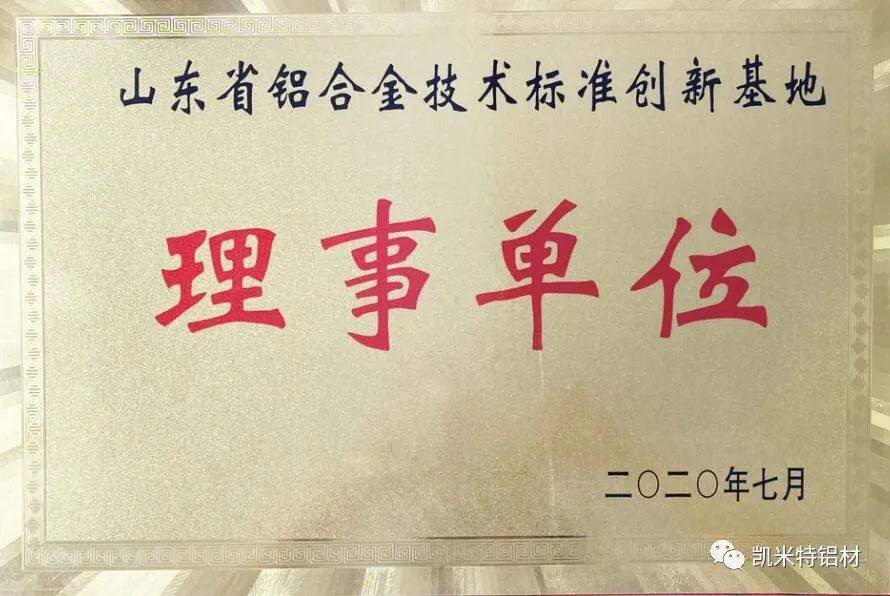 山东省铝合金技术标准创新基地
理事单位
二〇二〇年七月
凯米特铝材